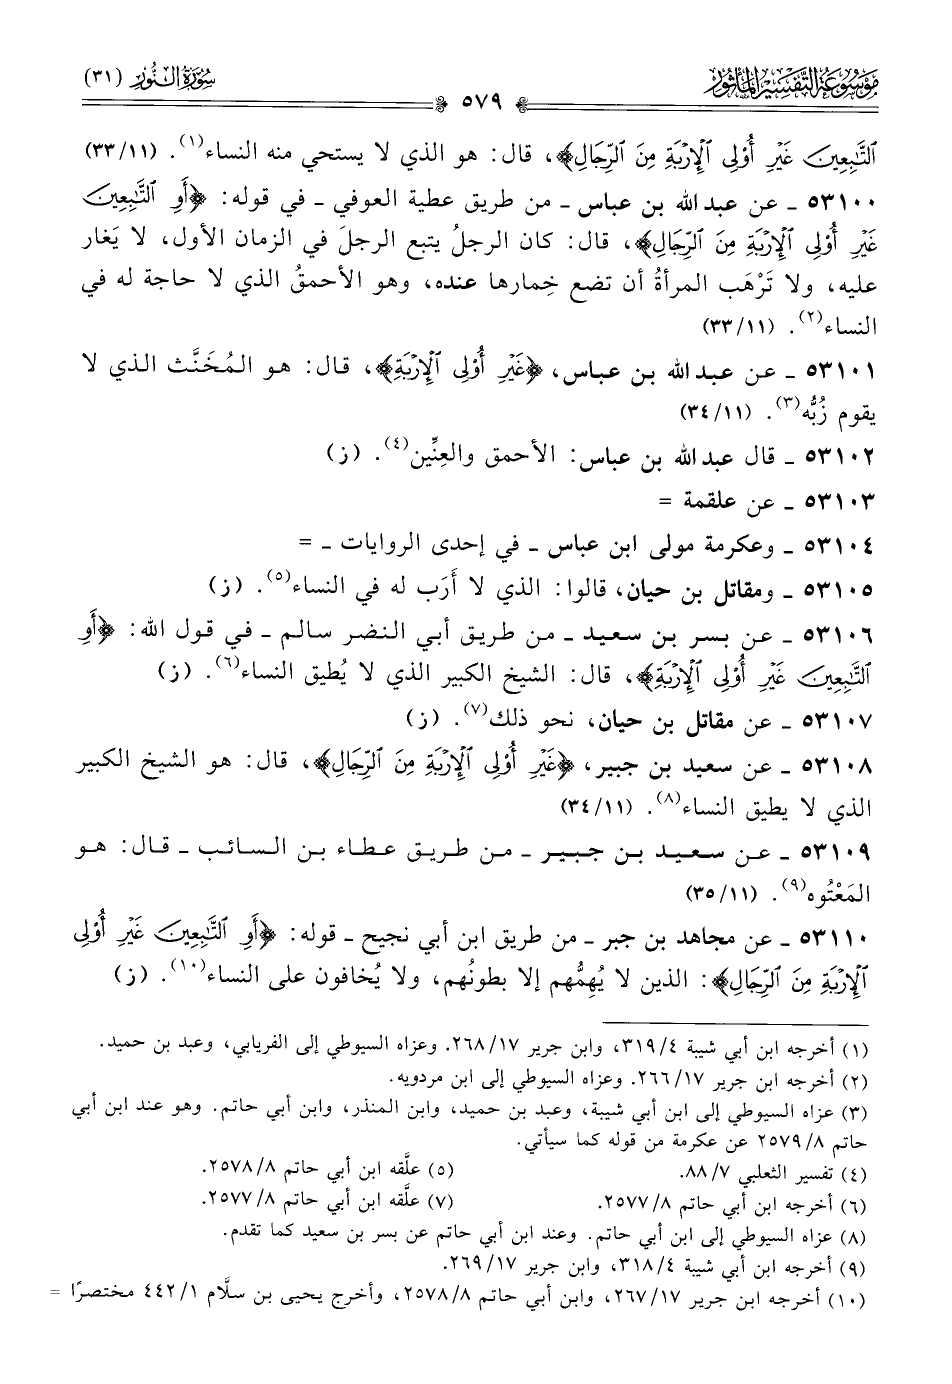 مَوْسُوعَة التَّفْسِير المَأثُور
٥٧٩
سُورَةُ النُّورِ (٣١)
ٱلتَّٰبِعِينَ غَيْرِ أُوْلِى ٱلْإِرْبَةِ مِنَ ٱلرِّجَالِ﴾، قال: هو الذي لا يستحي منه النساء(١). (٣٣/١١)
٥٣١٠٠ ـ عن عبد الله بن عباس ـ من طريق عطية العوفي ـ في قوله: ﴿أَوِ ٱلتَّٰبِعِينَ
غَيْرِ أُوْلِى ٱلْإِرْبَةِ مِنَ ٱلرِّجَالِ﴾، قال: كان الرجلُ يتبع الرجلَ في الزمان الأول، لا يَغار
عليه، ولا تَرْهَب المرأةُ أن تضع خِمارها عنده، وهو الأحمقُ الذي لا حاجة له في
النساء(٢). (٣٣/١١)
٥٣١٠١ ـ عن عبد الله بن عباس، ﴿غَيْرِ أُوْلِى ٱلْإِرْبَةِ﴾، قال: هو المُخَنَّث الذي لا
يقوم زُبُّه(٣). (٣٤/١١)
٥٣١٠٢ ـ قال عبد الله بن عباس: الأحمق والعِنِّين(٤). (ز)
٥٣١٠٣ ـ عن علقمة =
٥٣١٠٤ ـ وعكرمة مولى ابن عباس ـ في إحدى الروايات ـ =
٥٣١٠٥ ـ ومقاتل بن حيان، قالوا: الذي لا أَرَب له في النساء(٥). (ز)
٥٣١٠٦ ـ عن بسر بن سعيد ـ من طريق أبي النضر سالم ـ في قول الله: ﴿أَوِ
ٱلتَّٰبِعِينَ غَيْرِ أُوْلِى ٱلْإِرْبَةِ﴾، قال: الشيخ الكبير الذي لا يُطيق النساء(٦). (ز)
٥٣١٠٧ ـ عن مقاتل بن حيان، نحو ذلك(٧). (ز)
٥٣١٠٨ ـ عن سعيد بن جبير، ﴿غَيْرِ أُوْلِى ٱلْإِرْبَةِ مِنَ ٱلرِّجَالِ﴾، قال: هو الشيخ الكبير
الذي لا يطيق النساء(٨). (٣٤/١١)
٥٣١٠٩ ـ عن سعيد بن جبير ـ من طريق عطاء بن السائب ـ قال: هو
المَعْتُوه(٩). (٣٥/١١)
٥٣١١٠ ـ عن مجاهد بن جبر ـ من طريق ابن أبي نجيح ـ قوله: ﴿أَوِ ٱلتَّٰبِعِينَ غَيْرِ أُوْلِى
ٱلْإِرْبَةِ مِنَ ٱلرِّجَالِ﴾: الذين لا يُهِمُّهم إلا بطونُهم، ولا يُخافون على النساء(١٠). (ز)
(١) أخرجه ابن أبي شيبة ٣١٩/٤، وابن جرير ٢٦٨/١٧. وعزاه السيوطي إلى الفريابي، وعبد بن حميد.
(٢) أخرجه ابن جرير ٢٦٦/١٧. وعزاه السيوطي إلى ابن مردويه.
(٣) عزاه السيوطي إلى ابن أبي شيبة، وعبد بن حميد، وابن المنذر، وابن أبي حاتم. وهو عند ابن أبي
حاتم ٢٥٧٩/٨ عن عكرمة من قوله كما سيأتي.
(٤) تفسير الثعلبي ٨٨/٧. (٥) علَّقه ابن أبي حاتم ٢٥٧٨/٨.
(٦) أخرجه ابن أبي حاتم ٢٥٧٧/٨. (٧) علَّقه ابن أبي حاتم ٢٥٧٧/٨.
(٨) عزاه السيوطي إلى ابن أبي حاتم. وعند ابن أبي حاتم عن بسر بن سعيد كما تقدم.
(٩) أخرجه ابن أبي شيبة ٣١٨/٤، وابن جرير ٢٦٩/١٧.
(١٠) أخرجه ابن جرير ٢٦٧/١٧، وابن أبي حاتم ٢٥٧٨/٨، وأخرج يحيى بن سلَّام ٤٤٢/١ مختصرًا =